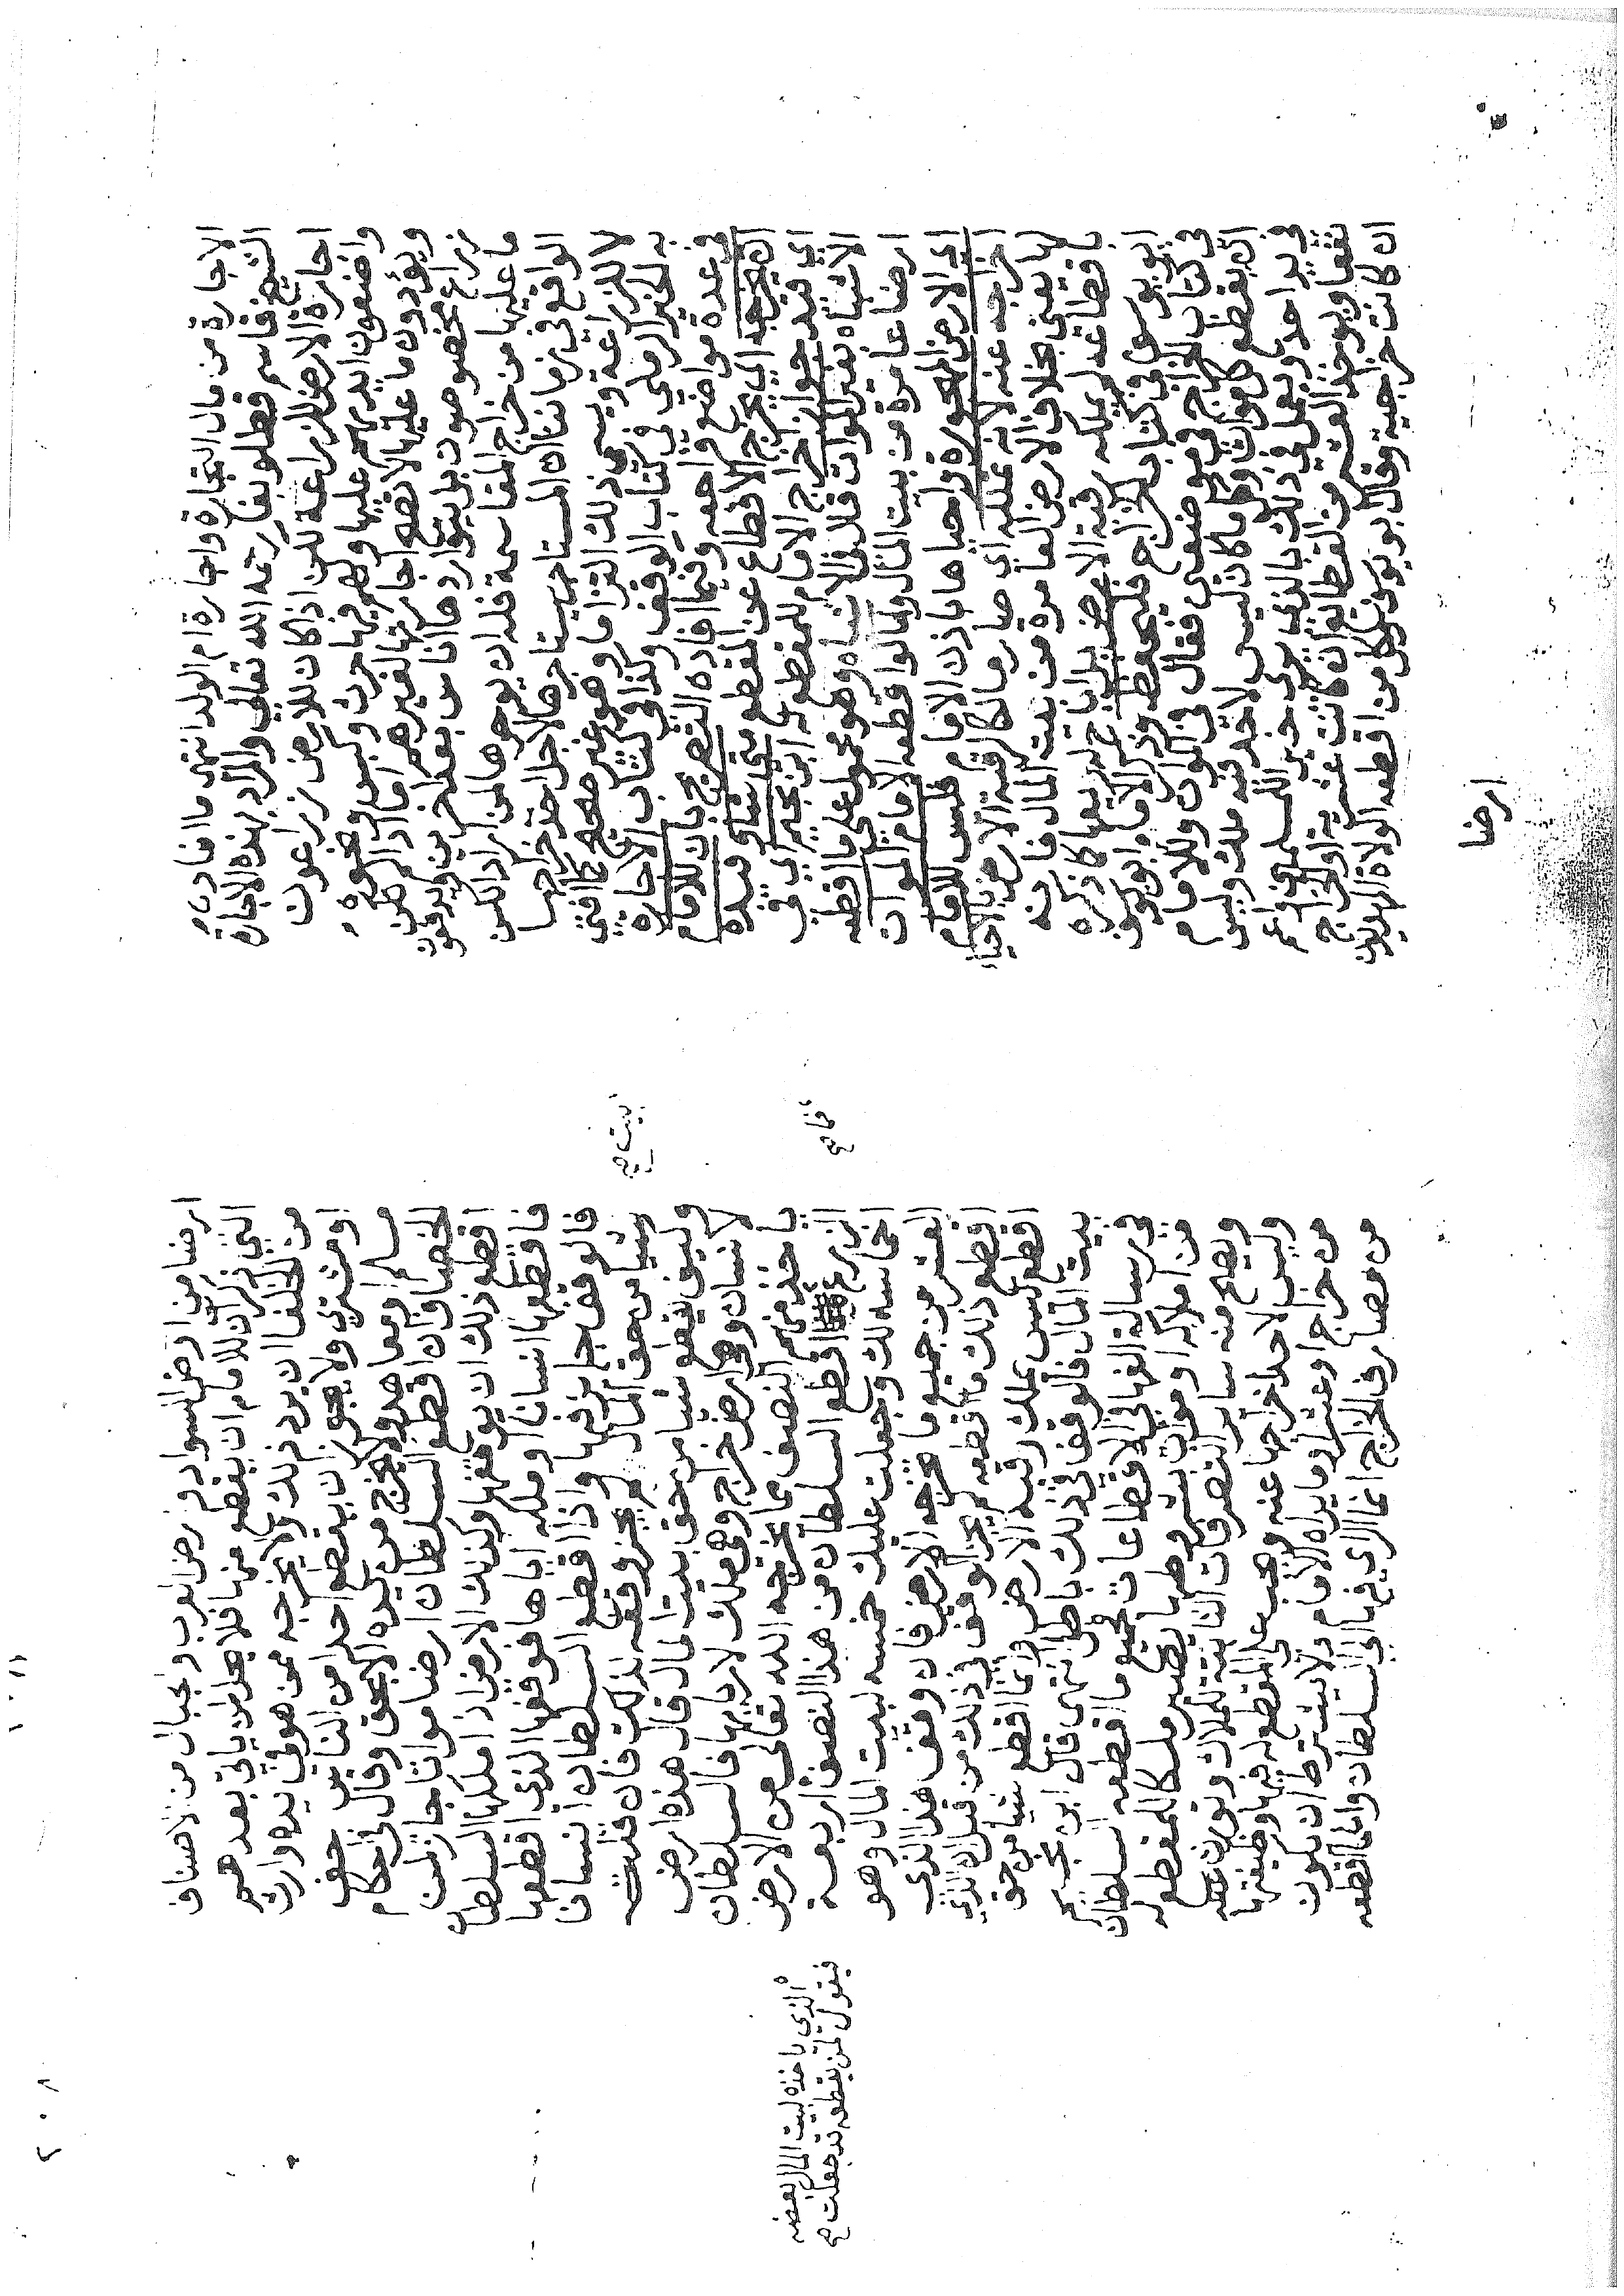 الاجارة من مال التجارة واجارة ام الولد انتهى ما افاده
الشيخ قاسم قطلوبغا رحمه الله تعالى والمراد بهذه الاجارة
اجارة الارض للزراعة لمن اذا كان للارض زراعون
واضعون ايديهم عليها ولهم فيها حرث وكبس ونحوه
ويؤدون ما عليها لا تصح اجارتها لغيرهم اما اذا لم يكن
زراع مخصوصون بل يتواردها اناس بعد اخرين ويدفعون
ما عليها من خراج المقاسمة فله ان يوجرها لمن اراد لكن
الواقع في زماننا ان المستاجر يستاجرها لاجل اخذ خراجها
لا للزراعة ويسمى ذلك التزاما وهو غير صحيح كما افتى
به الخير الرملي في كتاب الوقف وكذا في كتاب الاجارة
في عدة مواضع واهمه وفيما افاده التصريح بان للامام
ان يخرجه اي يخرج الاقطاع عن المقطع متى شاء وقيده
اي قيد جواز اخراج الامام للمقطع ابن نجيم اي في
الاشباه بغير الموات قال في الاشباه وهو محمول على ما اقطعه
ارضا عامرة من بيت المال ولما لو اقطعه الامام الموات
اي الارض المهجورة واحياها باذن الامام فليس للامام
اخراجه عنه لانه تملكه اي صار مالكا لرقبة الارض بالاحياء
لها يعني بخلاف الارض العامرة من بيت المال فانه
باقطاعه لم يملك رقبة الارض بل اباح له ريعها كما ذكره
ابو يوسف في كتاب الخراج فليحفظ وذكر الامام ابو يوسف
في كتاب الخراج في موضعين فقال في الاول وللامام
ان يقطع كل موات وكل ما كان ليس لاحد فيه ملك وليس
في يد احد ويعمل في ذلك بالذي يرى خير للمسلمين واعم
نفعا ويوخذ العشر من القطائع ان كانت عشرية او الخراج
ان كانت خراجية وقال ابو يوسف وكل من اقطعه الولاة المهديون
ارضا
ارضا من ارض السواد وارض العرب والجبال من الاصناف
التي ذكرنا ان للامام ان يقطع منها فلا يحل لمن ياتي بعدهم
من الخلفا ان يرد ذلك ولا يخرجه من هو في يده وارث
او مشتري ولا يجوز ان يقتطع احدا من الناس حق
مسلم او معاهد ولا يخرج من يده الا بحق وقال في احكام
الخصاف ان اقطع السلطان ارضا مواتا جاز لمن
اقطع ذلك ان يوقفها وكذلك الارض اذا ملكها السلطان
فاقطعها انسانا وملكه اياها فوقفها الذي اقطعها
فالوقف جائز فيها واذا اقطع السلطان انسانا
شيئا من حق المال لم يجز وقفه لذلك فان قلت
وكيف يقطع شيئا من حق بيت المال قال هذه ارض
لانسان وهي ارض خراج وهي ملك لاربابها فالسلطان
ياخذ منهم النصف مما يخرجه الله تعالى من الارض
الزرع اقطع السلطان من هذا النصف اربعة
اخماسه لك وجعلت عليك خمسه لبيت المال وهو
العشر من جميع ما تخرجه الارض فان وقف هذا الذي
اقطع ذلك ما اقطعه لم يجز الوقف في ذلك من قبل ان الذي
اقطع ليس بملك رقبة الارض وانما اقطع شيئا من حق
بيت المال فالوقف في ذلك باطل انتهى قال ابن نجيم
في رسالة الفها في الاقطاعات جميع ما اقطعه السلطان
من املاكه او موات بشروطها يصير ملكا للمقطع له
ويصح منه سائر التصرفات الثابتة للملاك وتورث عنه
وليس لاحد اخراجها عنه ويجب على المقطع له فيها وظيفتها
من خراج او عشر او ما يراه الامام ولا يشترط ان يكون
من مصارف الخراج انما الراي فيها الى السلطان واما ما اقطعه
لبيت صح
فامح
الذي ياخذه لبيت المال بعضه
فيقول لمن يقطعه قد جعلت صح